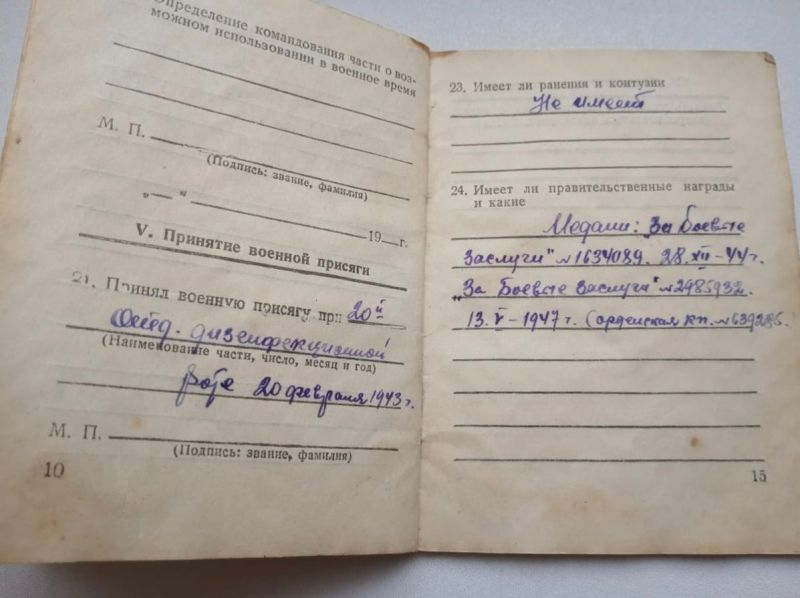 Определение командования части о воз-
можном использовании в военное время
М. П.
(Подпись: звание, фамилия)
„ — “ 19 — г.
V. Принятие военной присяги
21. Принял военную присягу при 20й
Отд. дизенфекционной
(Наименование части, число, месяц и год)
роте 20 февраля 1943 г.
М. П.
(Подпись: звание, фамилия)
10
23. Имеет ли ранения и контузии
Не имеет
24. Имеет ли правительственные награды
и какие
Медали: За боевые
заслуги" №1634089. 28.XII-44г.
„За Боевые Заслуги" №2985932.
13.V-1947 г. (орденская кн. №639285.
15